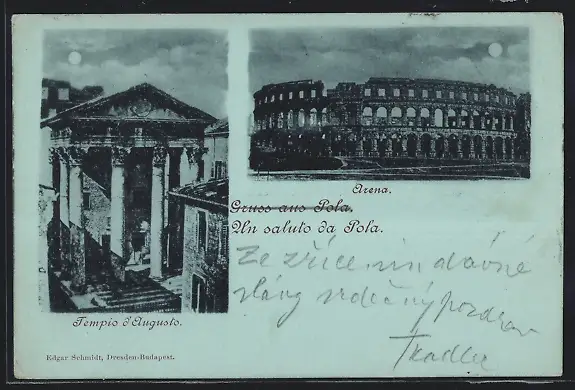 Arena.
Gruss aus Pola.
Un saluto da Pola.
Ze zřícenin dávné
slávy srdečný pozdrav
Tkadlec
Tempio d'Augusto.
Edgar Schmidt, Dresden-Budapest.